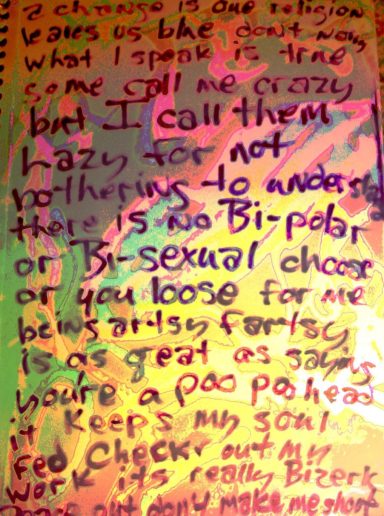 2 change is one religion
leaves us blue don't now
what I speak is true
some call me crazy
but I call them
hazy for not
bothering to understa
there is no Bi-polar
or Bi-sexual choose
or you loose for me
being artsy fartsy
is as great as saying
you're a poo poo head
it keeps my soul
Fed Checkr out my
work its really Bizerk
out don't make me short